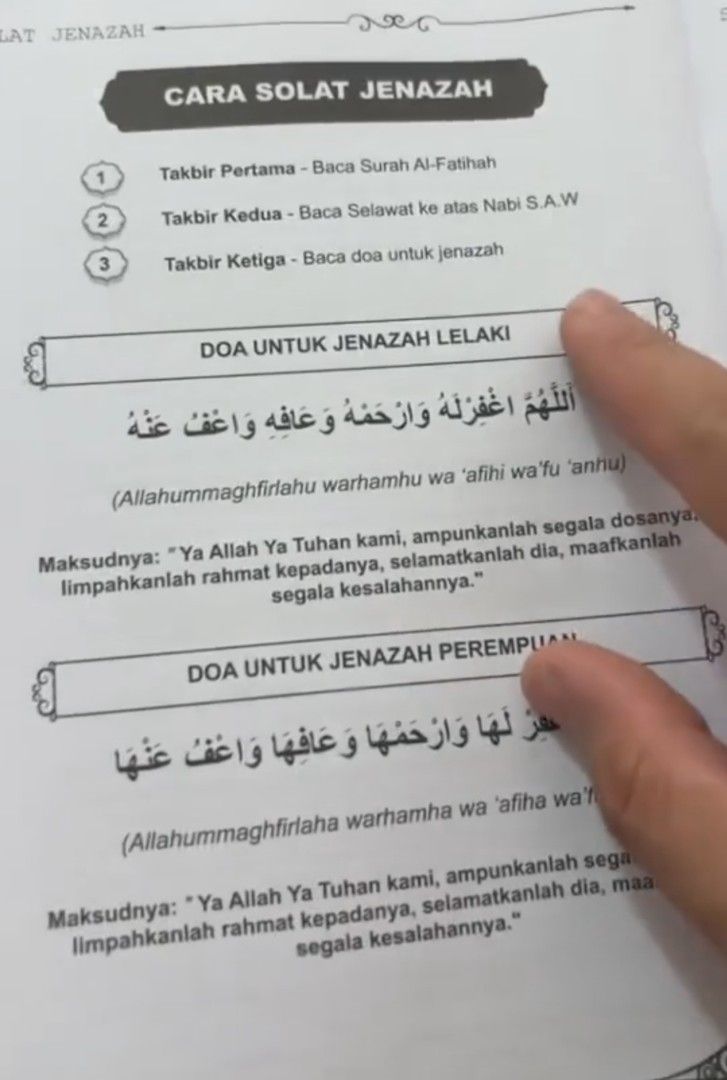 LAT JENAZAH
CARA SOLAT JENAZAH
1 Takbir Pertama - Baca Surah Al-Fatihah
2 Takbir Kedua - Baca Selawat ke atas Nabi S.A.W
3 Takbir Ketiga - Baca doa untuk jenazah
DOA UNTUK JENAZAH LELAKI
اَللَّهُمَّ اغْفِرْلَهُ وَارْحَمْهُ وَعَافِهِ وَاعْفُ عَنْهُ
(Allahummaghfirlahu warhamhu wa 'afihi wa'fu 'anhu)
Maksudnya: "Ya Allah Ya Tuhan kami, ampunkanlah segala dosanya,
limpahkanlah rahmat kepadanya, selamatkanlah dia, maafkanlah
segala kesalahannya."
DOA UNTUK JENAZAH PEREMPUAN
لَهَا وَارْحَمْهَا وَعَافِهَا وَاعْفُ عَنْهَا
(Allahummaghfirlaha warhamha wa 'afiha
Maksudnya: "Ya Allah Ya Tuhan kami, ampunkanlah
limpahkanlah rahmat kepadanya, selamatkanlah dia,
segala kesalahannya."